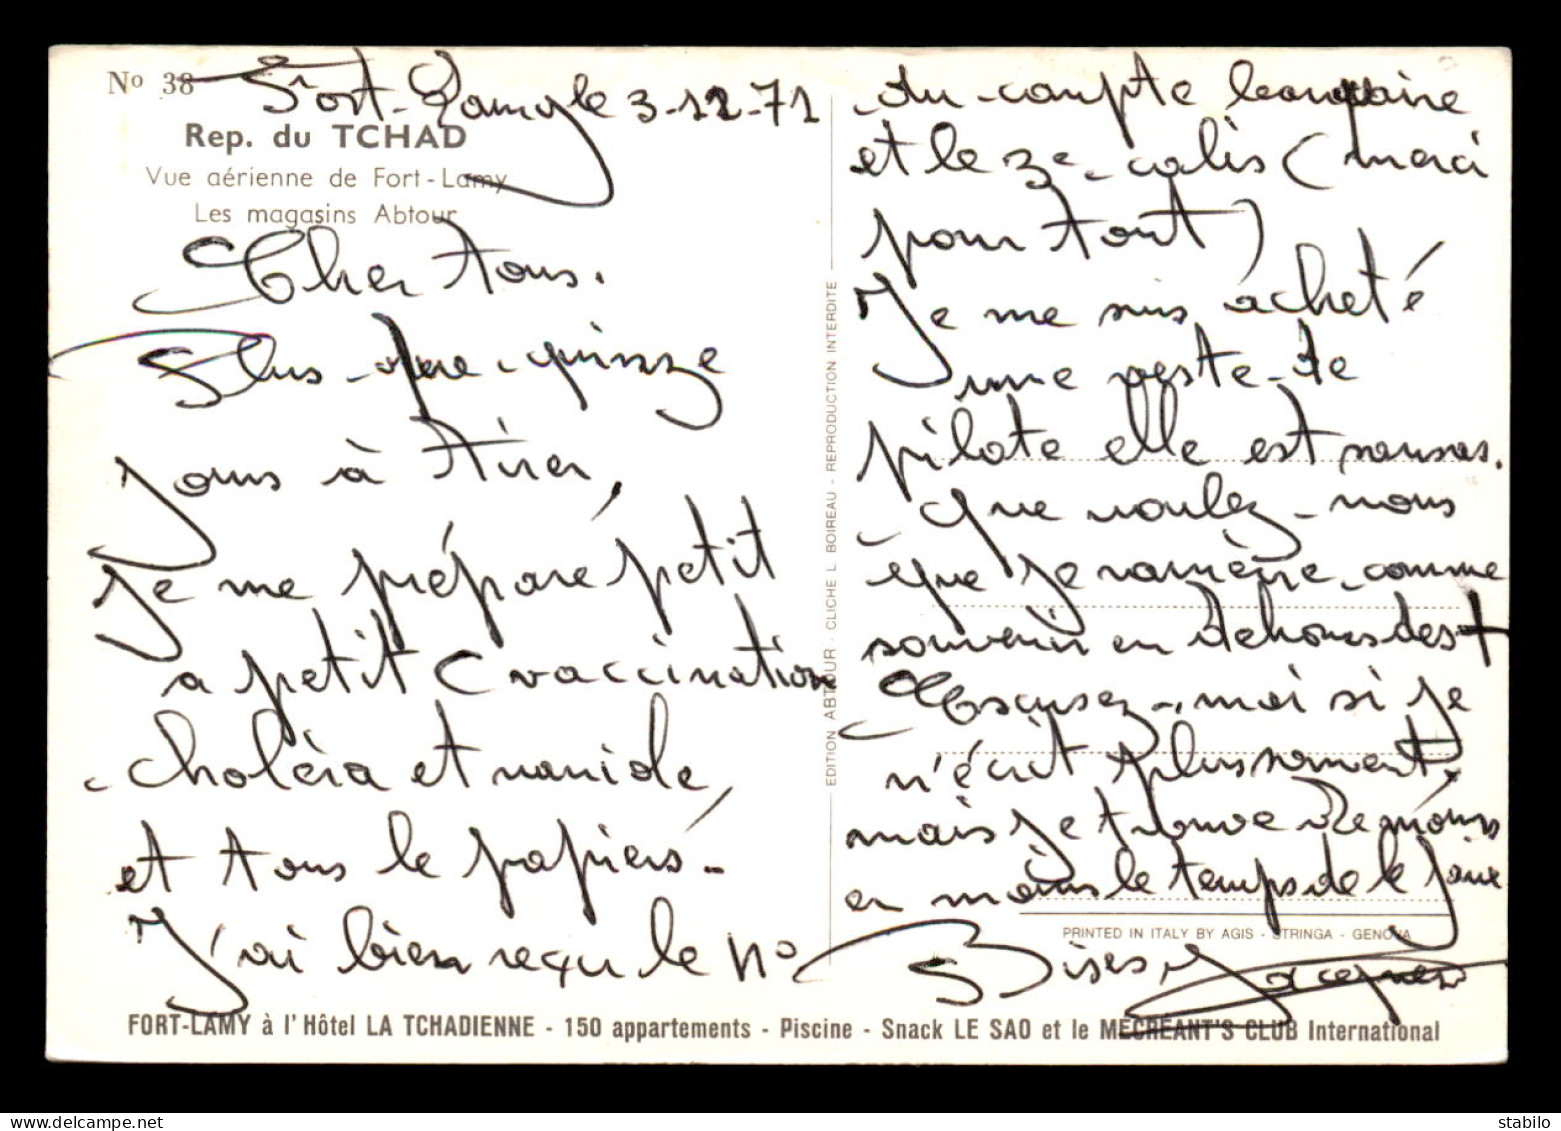 No 38
Fort-Lamy le 3-12-71
Rep. du TCHAD
Vue aérienne de Fort-Lamy
Les magasins Abtour
Cher tous.
Plus que quinze
jours à tirer,
je me prépare petit
a petit (vaccination
choléra et variole,
et tous le papiers-
J'ai bien reçu le N°
du compte bancaire
et le 3e colis (merci
pour tout)
Je me suis acheté
une veste de
pilote elle est sensas.
Que voulez-vous
que je ramène comme
souvenir en dehors des +
Excusez-moi si je
n'écrit plus souvent,
mais je trouve de moins
en moins le temps de le faire
Bises, Jacques
EDITION ABTOUR - CLICHE L. BOIREAU - REPRODUCTION INTERDITE
PRINTED IN ITALY BY AGIS - STRINGA - GENOVA
FORT-LAMY à l'Hôtel LA TCHADIENNE - 150 appartements - Piscine - Snack LE SAO et le MECREANT'S CLUB International
stabilo